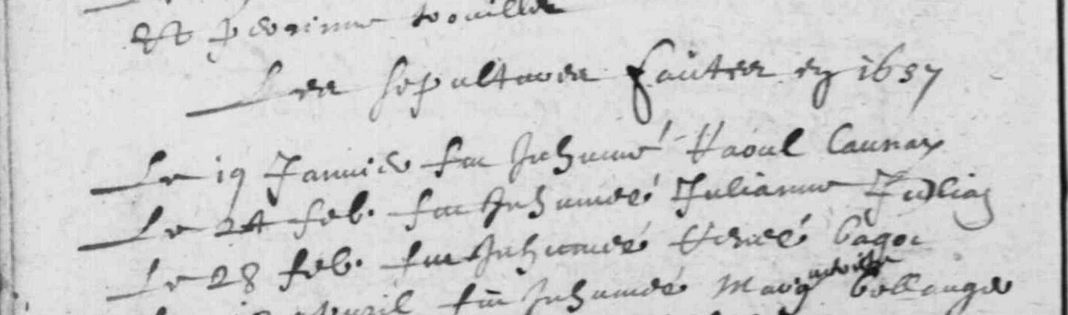 et perinne
Les sepultures faites en 1657
Le 19 Janvier fut Inhumé Raoul Launay
Le 24 feb. fut Inhumeé Julianne Julien
Le 28 feb. fut Inhumeé Reneé
apuril fut Inhumeé bellanger